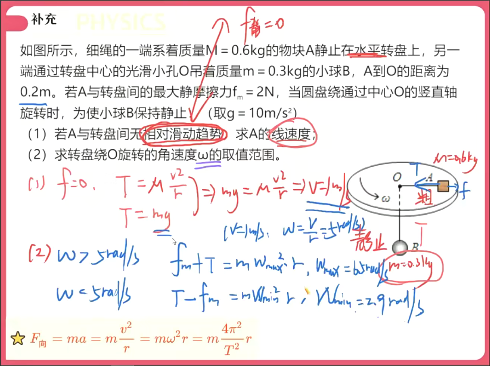 PHYSICS
补充
f静=0
如图所示，细绳的一端系着质量M＝0.6kg的物块A静止在水平转盘上，另一
端通过转盘中心的光滑小孔O吊着质量m＝0.3kg的小球B，A到O的距离为
0.2m。若A与转盘间的最大静摩擦力fm＝2N，当圆盘绕通过中心O的竖直轴
旋转时，为使小球B保持静止（取g＝10m/s²）
（1）若A与转盘间无相对滑动趋势，求A的线速度；
（2）求转盘绕O旋转的角速度ω的取值范围。
(1) f=0, T = M v²/r
T = mg
⇒ mg = M v²/r ⇒ V=1m/s
(V=1m/s, ω = V/r = 5rad/s)
(2) ω>5rad/s fm+T = mωmax²·r, ωmax=6.5rad/s
ω<5rad/s T-fm = mωmin²·r, ωmin=2.9rad/s
M=0.6kg
T
O
A
f
ω
T
静止
B
m=0.3kg
F向 = ma = m v²/r = mω²r = m 4π²/T² r